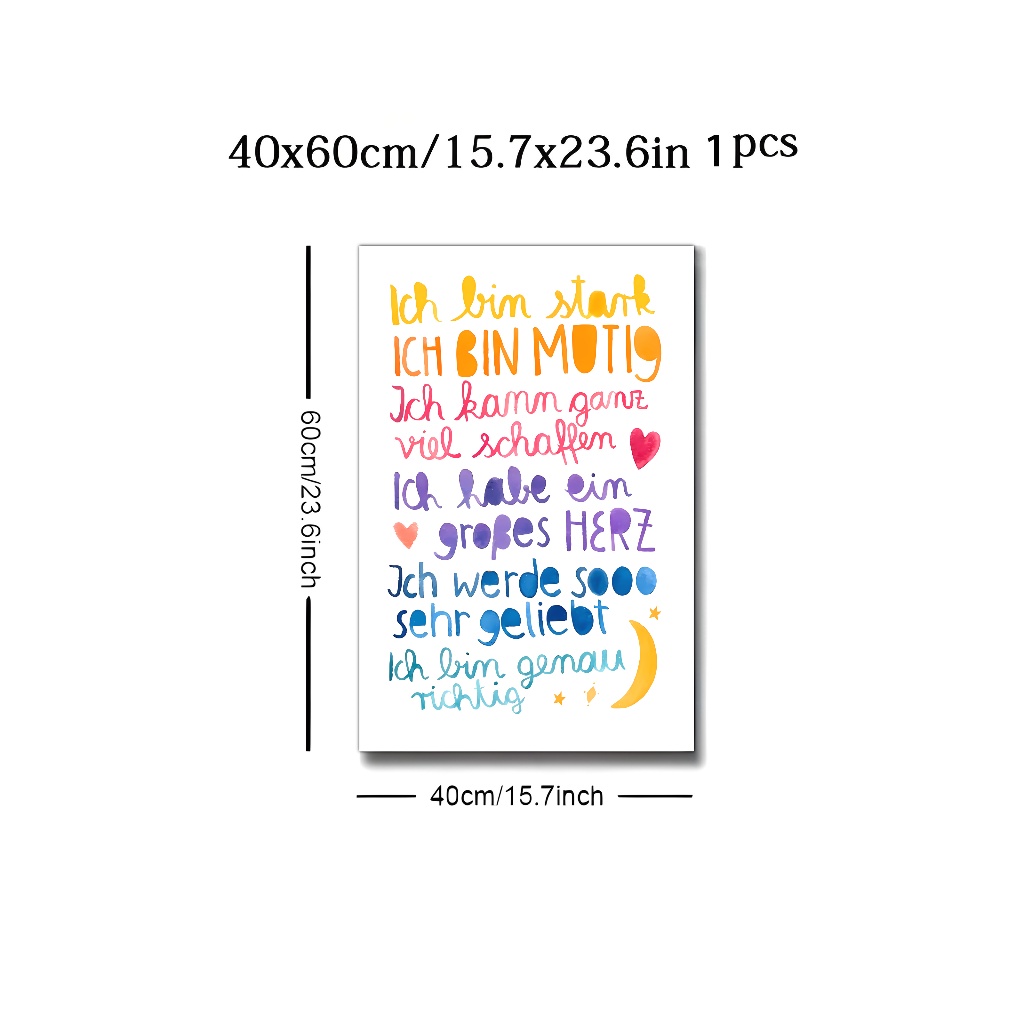 40x60cm/15.7x23.6in 1pcs
60cm/23.6inch
Ich bin stark
ICH BIN MUTIG
Ich kann ganz
viel schaffen
Ich habe ein
großes HERZ
Ich werde sooo
sehr geliebt
Ich bin genau
richtig
40cm/15.7inch